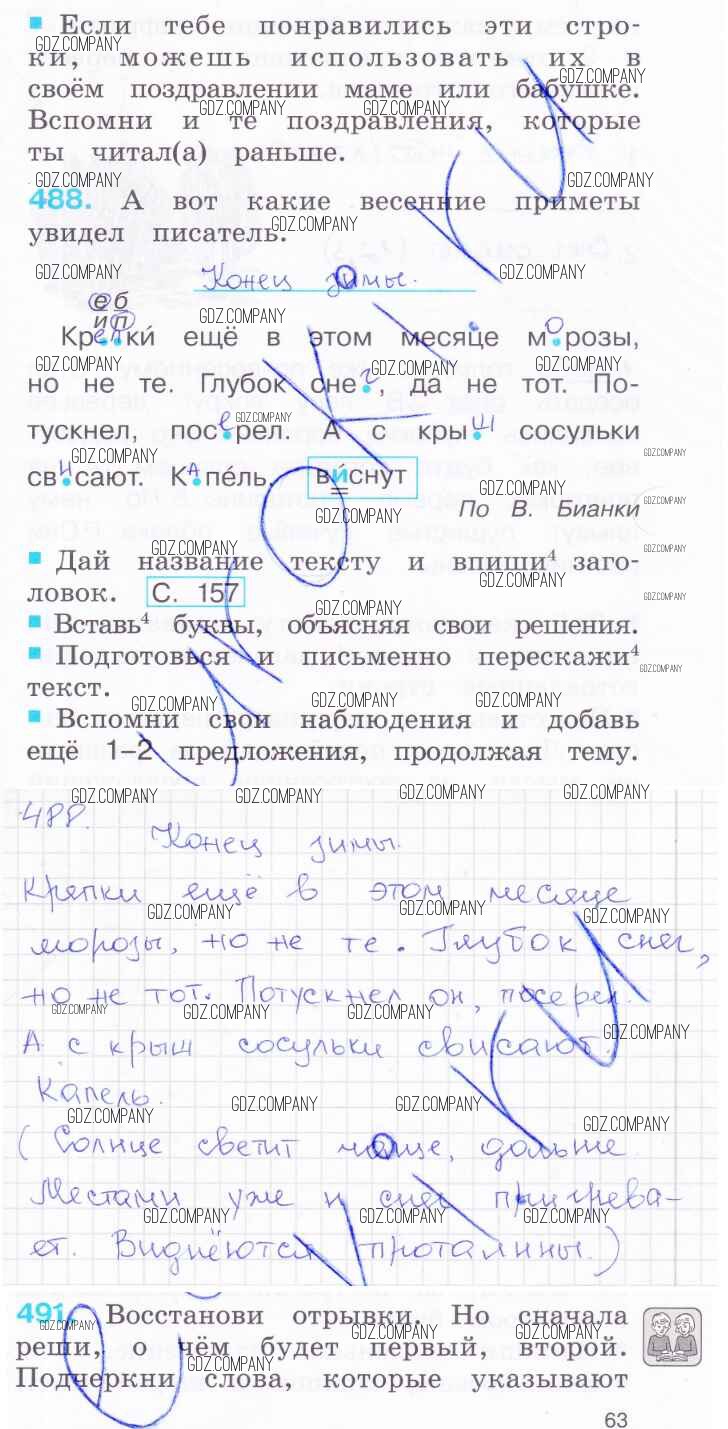 Если тебе понравились эти стро-
ки, можешь использовать их в
своём поздравлении маме или бабушке.
Вспомни и те поздравления, которые
ты читал(а) раньше.
488. А вот какие весенние приметы
увидел писатель.
Конец зимы.
е б
и п
Крепки́ ещё в этом месяце морозы,
но не те. Глубок снег, да не тот. По-
тускнел, посерел. А с крыш сосульки
свисают. Капе́ль. ви́снут
По В. Бианки
Дай название тексту и впиши⁴ заго-
ловок. С. 157
Вставь⁴ буквы, объясняя свои решения.
Подготовься и письменно перескажи⁴
текст.
Вспомни свои наблюдения и добавь
ещё 1–2 предложения, продолжая тему.
488.
Конец зимы.
Крепки ещё в этом месяце
морозы, но не те. Глубок снег,
но не тот. Потускнел он, посерел.
А с крыш сосульки свисают.
Капель.
(Солнце светит чаще, дольше.
Местами уже и снег пригрева-
ет. Виднеются проталины.)
491. Восстанови отрывки. Но сначала
реши, о чём будет первый, второй.
Подчеркни слова, которые указывают
63
GDZ.COMPANY